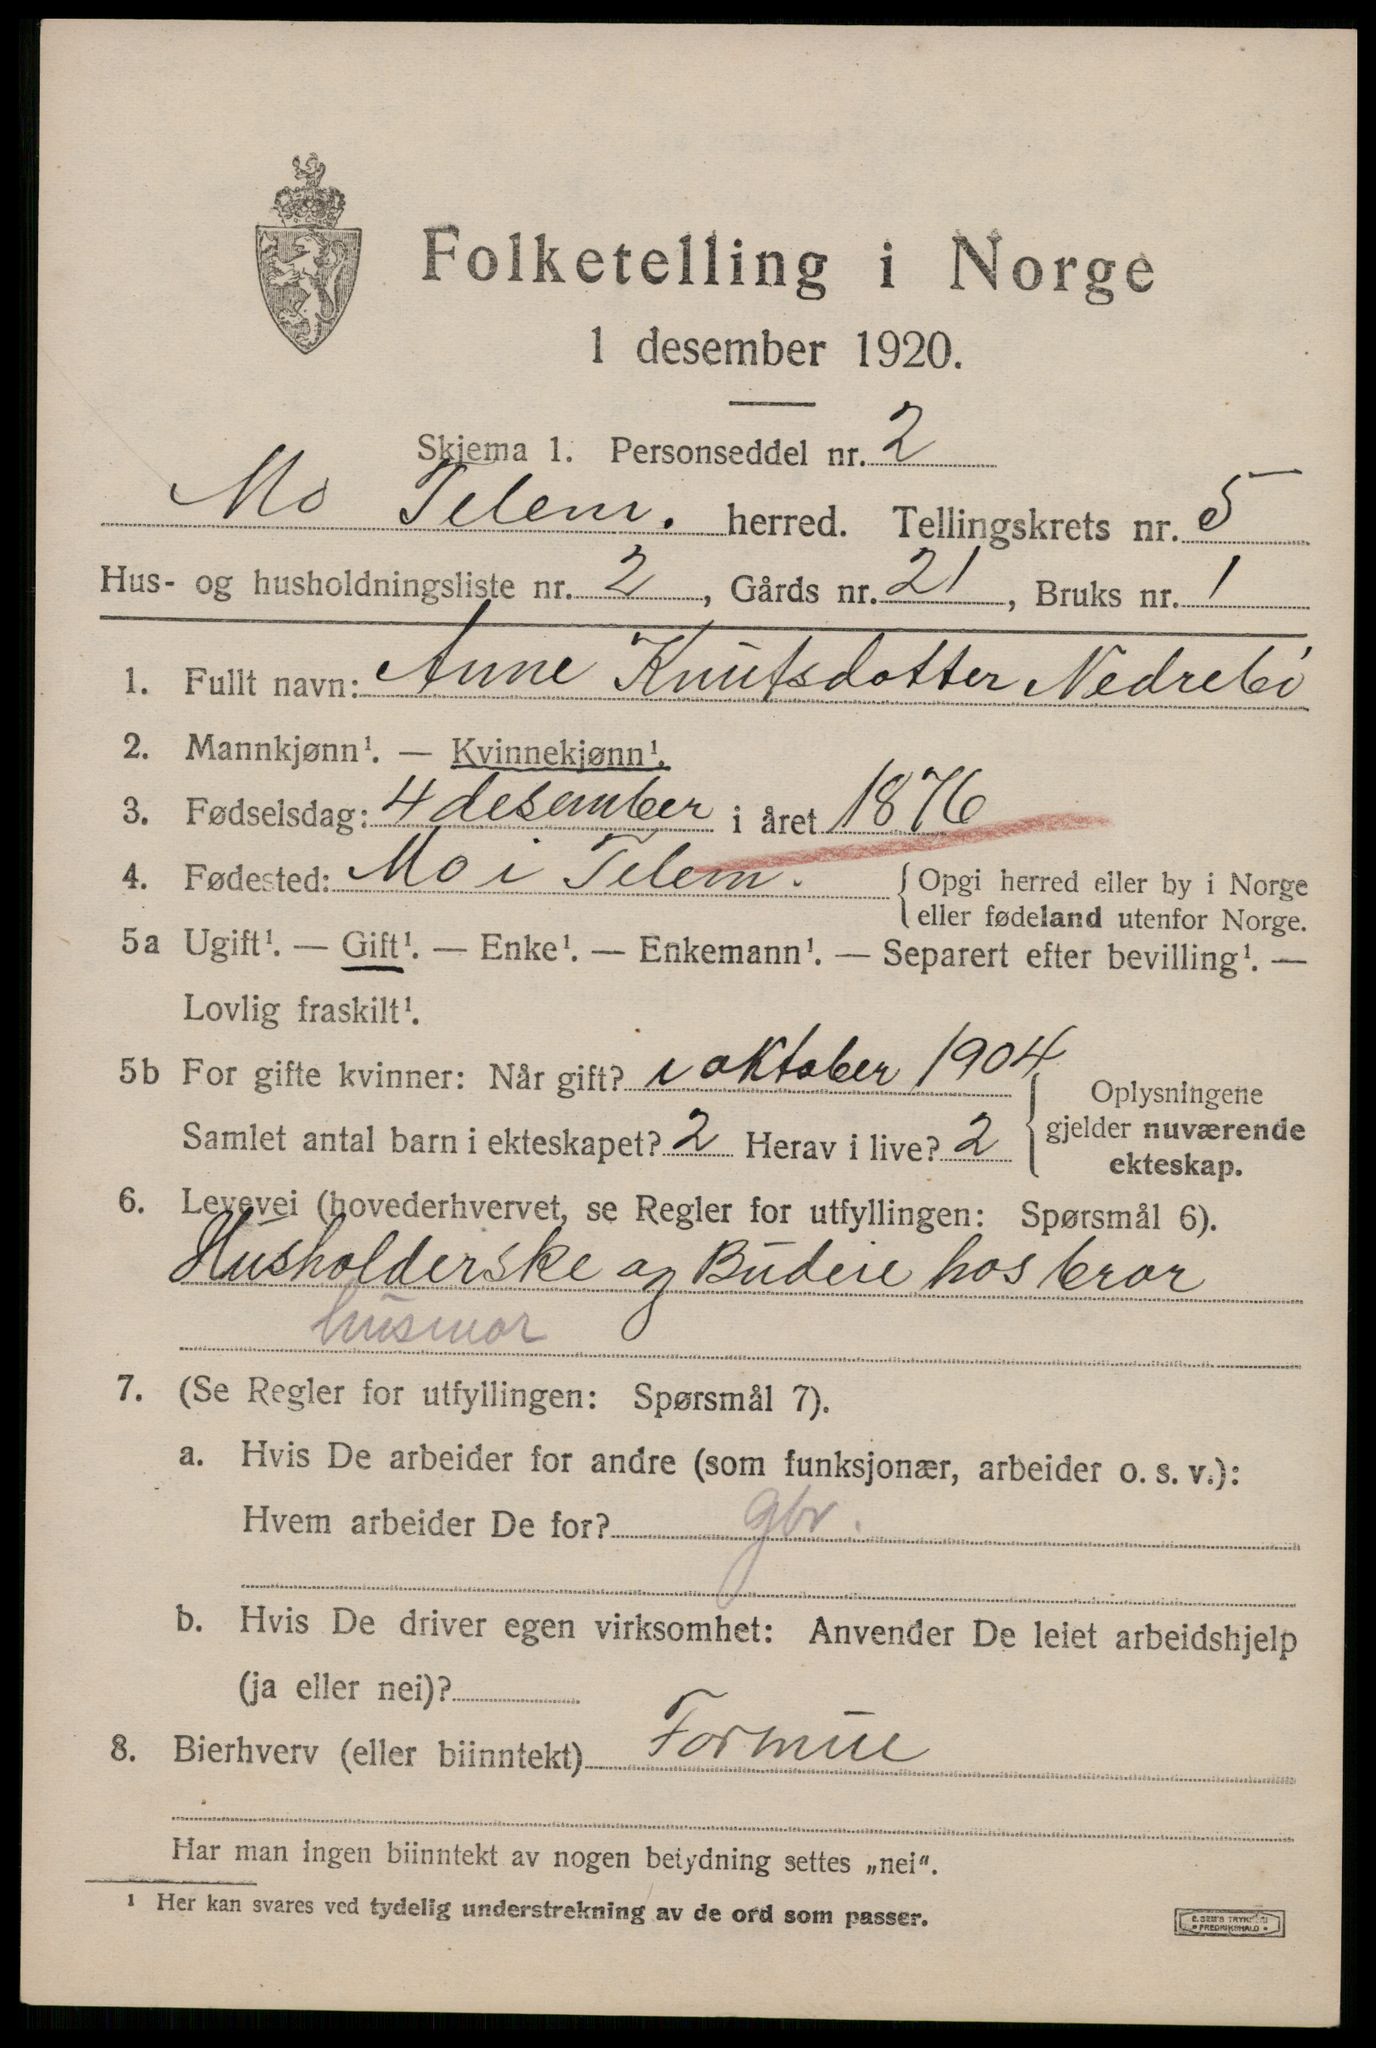 Folketelling i Norge
1 desember 1920.
Skjema 1. Personseddel nr. 2
Mo Telem. herred. Tellingskrets nr. 5
Hus- og husholdningsliste nr. 2, Gårds nr. 21, Bruks nr. 1
1. Fullt navn: Anne Knutsdotter Nedrebö
2. Mannkjønn¹. — Kvinnekjønn¹.
3. Fødselsdag: 4 desember i året 1876
4. Fødested: Mo i Telem. { Opgi herred eller by i Norge
eller fødeland utenfor Norge.
5a Ugift¹. — Gift¹. — Enke¹. — Enkemann¹. — Separert efter bevilling¹. —
Lovlig fraskilt¹.
5b For gifte kvinner: Når gift? i oktober 1904
Samlet antal barn i ekteskapet? 2 Herav i live? 2
{ Oplysningene
gjelder nuværende
ekteskap.
6. Levevei (hovederhvervet, se Regler for utfyllingen: Spørsmål 6).
Husholderske og Budeie hos bror
husmor
7. (Se Regler for utfyllingen: Spørsmål 7).
a. Hvis De arbeider for andre (som funksjonær, arbeider o. s. v.):
Hvem arbeider De for? gbr.
b. Hvis De driver egen virksomhet: Anvender De leiet arbeidshjelp
(ja eller nei)?
8. Bierhverv (eller biinntekt) Formue
Har man ingen biinntekt av nogen betydning settes „nei“.
¹ Her kan svares ved tydelig understrekning av de ord som passer.
E. SEM'S TRYKKERI
• FREDRIKSHALD •